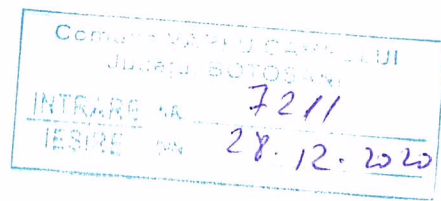 Comuna VÂRFU CÂMPULUI
Județul BOTOȘANI
INTRARE NR. 7211
IEȘIRE DIN 28.12.2020